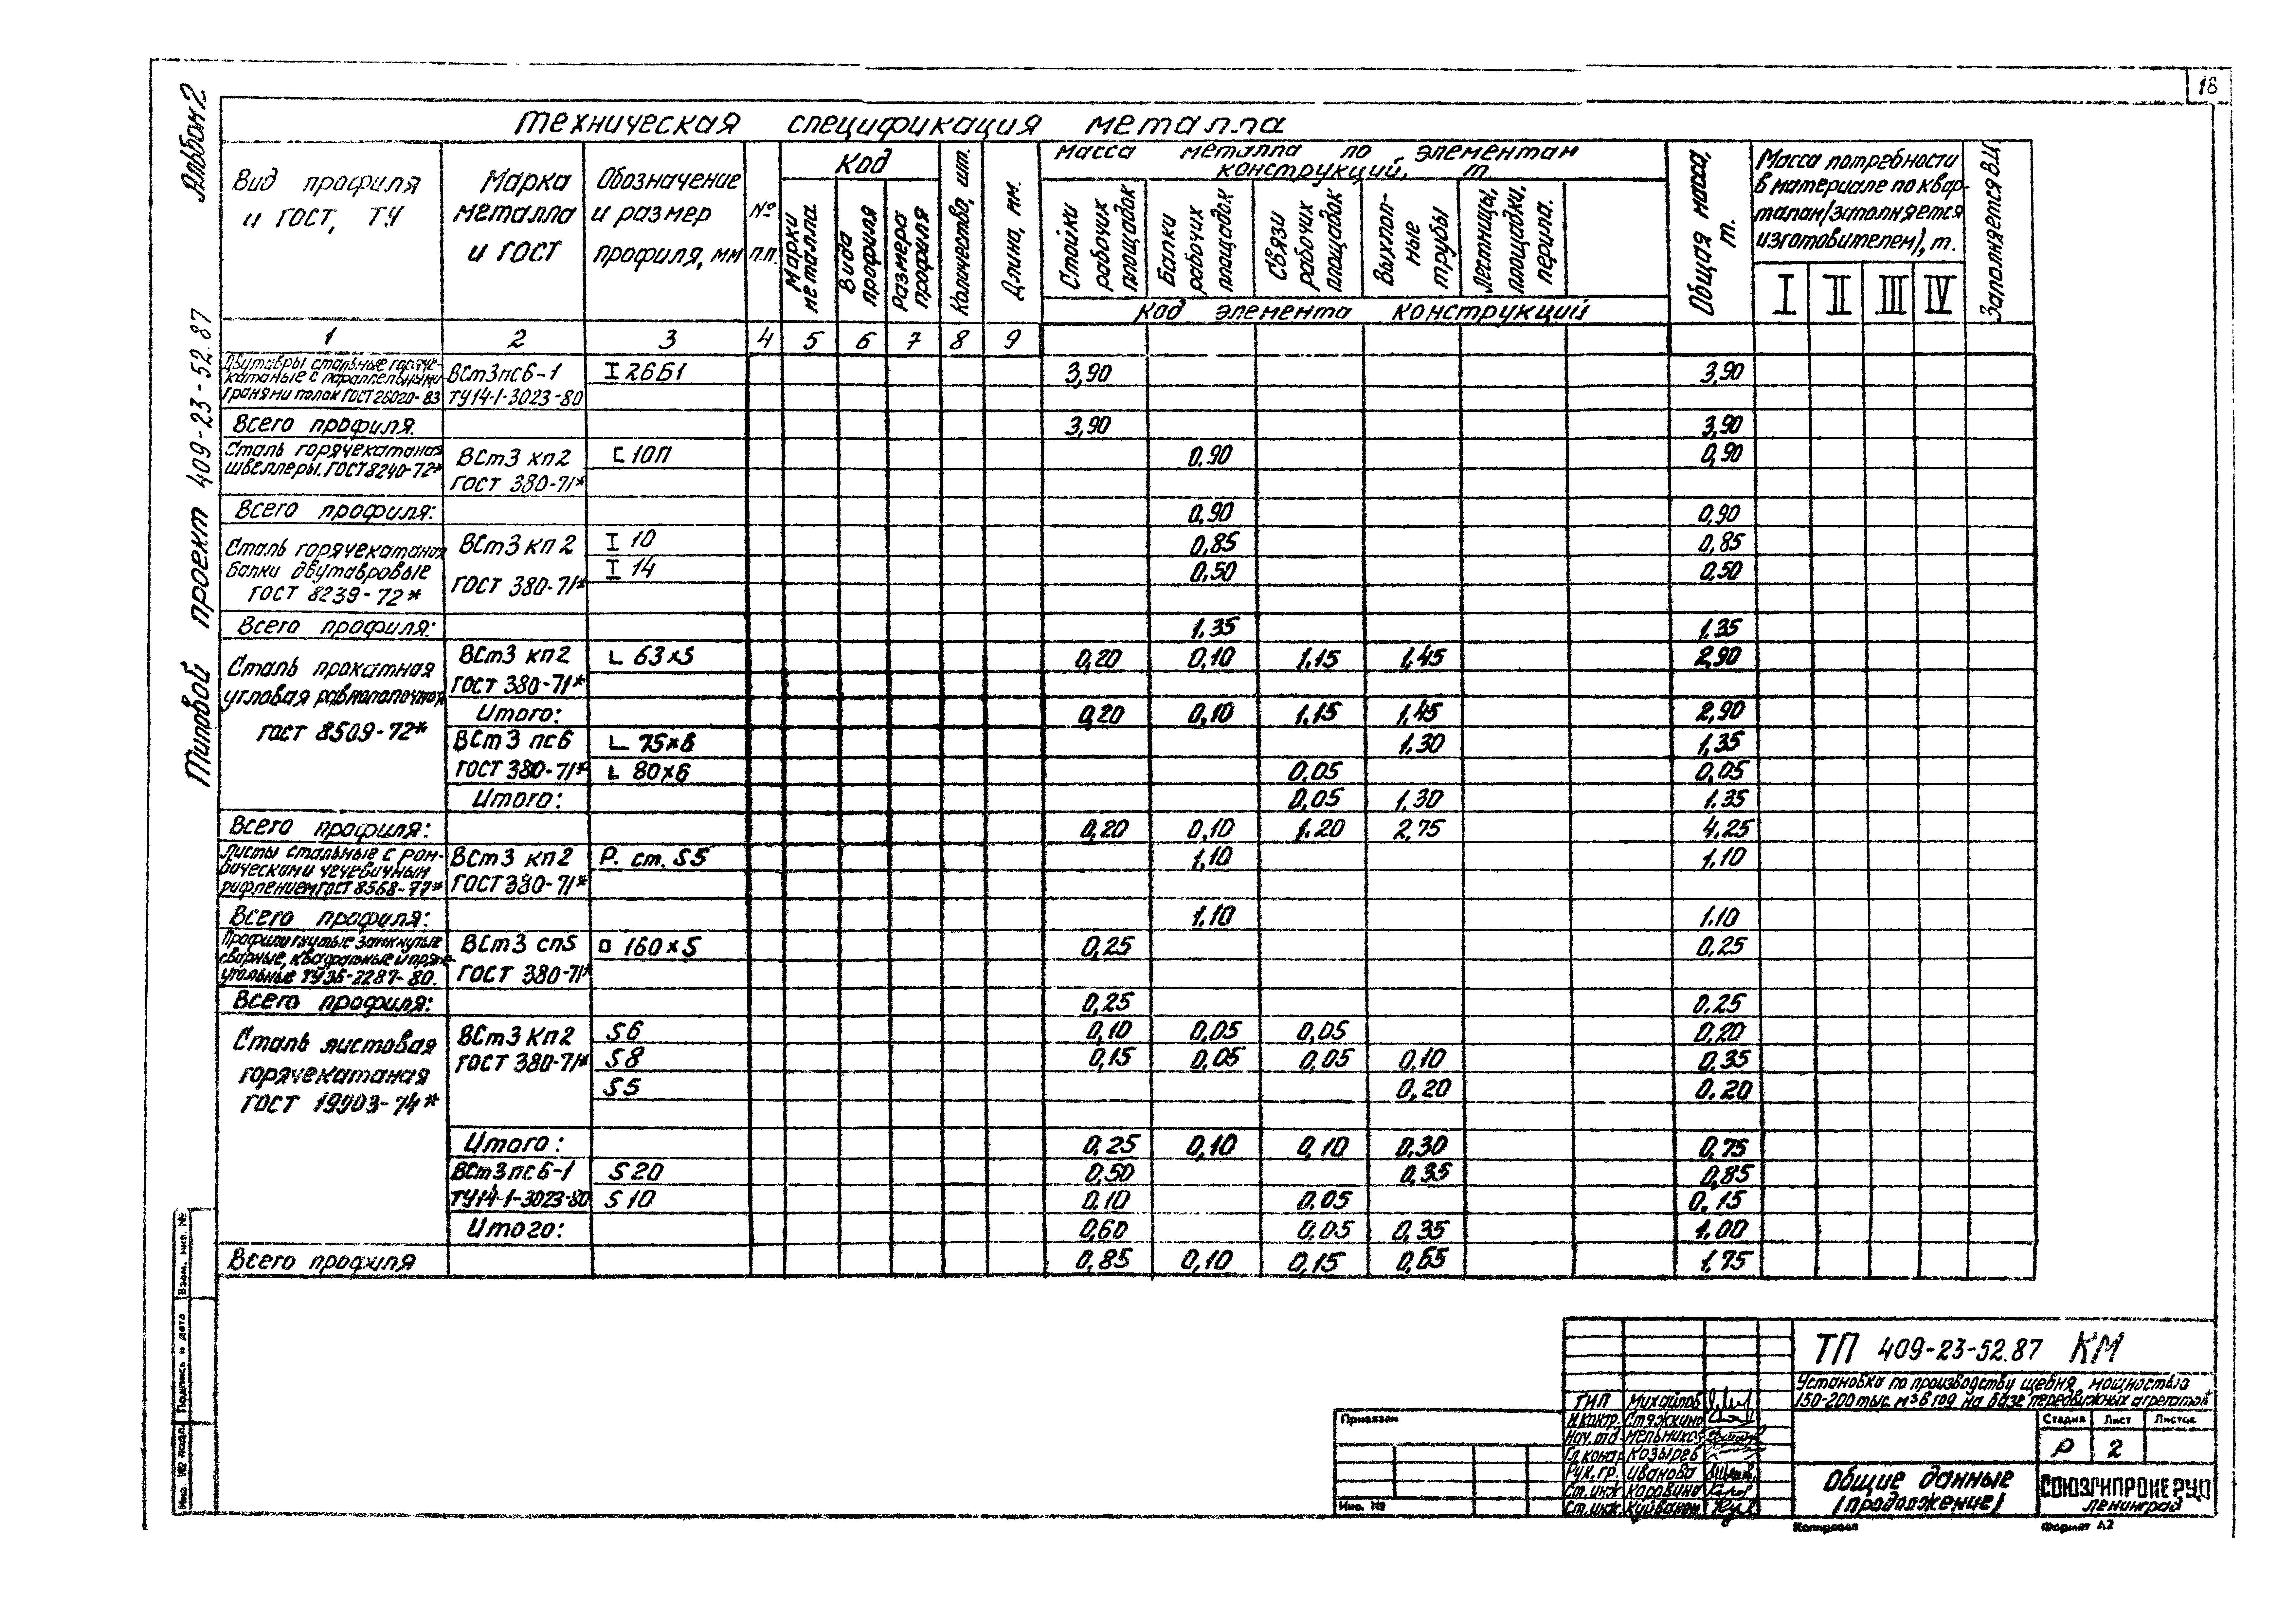 18
Альбом 2
Типовой проект 409-23-52.87
Техническая спецификация металла
Вид профиля и ГОСТ, ТУ
Марка металла и ГОСТ
Обозначение и размер профиля, мм
№ п.п.
Код
Марки металла
Вида профиля
Размера профиля
Количество, шт.
Длина, мм.
Масса металла по элементам конструкций, т
Стойки рабочих площадок
Балки рабочих площадок
Связи рабочих площадок
Выхлопные трубы
Лестницы, площадки, перила.
Код элемента конструкций
Общая масса, т.
Масса потребности в материале по кварталам/заполняется изготовителем), т.
I II III IV
Заполняется ВЦ
1 2 3 4 5 6 7 8 9
Двутавры стальные горячекатаные с параллельными гранями полок ГОСТ 26020-83
ВСт3пс6-1 I 26Б1 3,90 3,90
ТУ14-1-3023-80
Всего профиля 3,90 3,90
Сталь горячекатаная швеллеры. ГОСТ 8240-72*
ВСт3 кп2 [ 10П 0,90 0,90
ГОСТ 380-71*
Всего профиля: 0,90 0,90
Сталь горячекатаная балки двутавровые ГОСТ 8239-72*
ВСт3 кп2 I 10 0,85 0,85
ГОСТ 380-71* I 14 0,50 0,50
Всего профиля: 1,35 1,35
Сталь прокатная угловая равнополочная ГОСТ 8509-72*
ВСт3 кп2 L 63×5 0,20 0,10 1,15 1,45 2,90
ГОСТ 380-71*
Итого: 0,20 0,10 1,15 1,45 2,90
ВСт3 пс6 L 75×6 1,30 1,35
ГОСТ 380-71* L 80×6 0,05 0,05
Итого: 0,05 1,30 1,35
Всего профиля: 0,20 0,10 1,20 2,75 4,25
Листы стальные с ромбическими чечевичным рифлением ГОСТ 8568-77*
ВСт3 кп2 Р. ст. S5 1,10 1,10
ГОСТ 380-71*
Всего профиля: 1.10 1.10
Профили гнутые замкнутые сварные, квадратные и прямоугольные ТУ36-2287-80.
ВСт3 сп5 □ 160×5 0,25 0,25
ГОСТ 380-71*
Всего профиля: 0,25 0.25
Сталь листовая горячекатаная ГОСТ 19903-74*
ВСт3 кп2 S6 0,10 0,05 0,05 0,20
ГОСТ 380-71* S8 0,15 0,05 0,05 0,10 0,35
S5 0,20 0.20
Итого: 0,25 0,10 0,10 0,30 0,75
ВСт3пс6-1 S20 0,50 0,35 0,85
ТУ14-1-3023-80 S10 0,10 0,05 0,15
Итого: 0,60 0,05 0,35 1,00
Всего профиля 0,85 0,10 0,15 0,65 1,75
Взам. инв. №
Подпись и дата
Инв. № подл.
Привязан
Инв. №
ГИП Михайлов
Н.контр. Стяжкина
Нач.отд. Мельников
Гл.конс. Козырев
Рук. гр. Иванова
Ст.инж. Коровина
Ст.инж.
ТП 409-23-52.87 КМ
Установка по производству щебня мощностью 150-200 тыс. м³ в год на базе передвижных агрегатов
Стадия Лист Листов
Р 2
Общие данные (продолжение)
СОЮЗГИПРОНЕРУД
Ленинград
Копировал
Формат А2